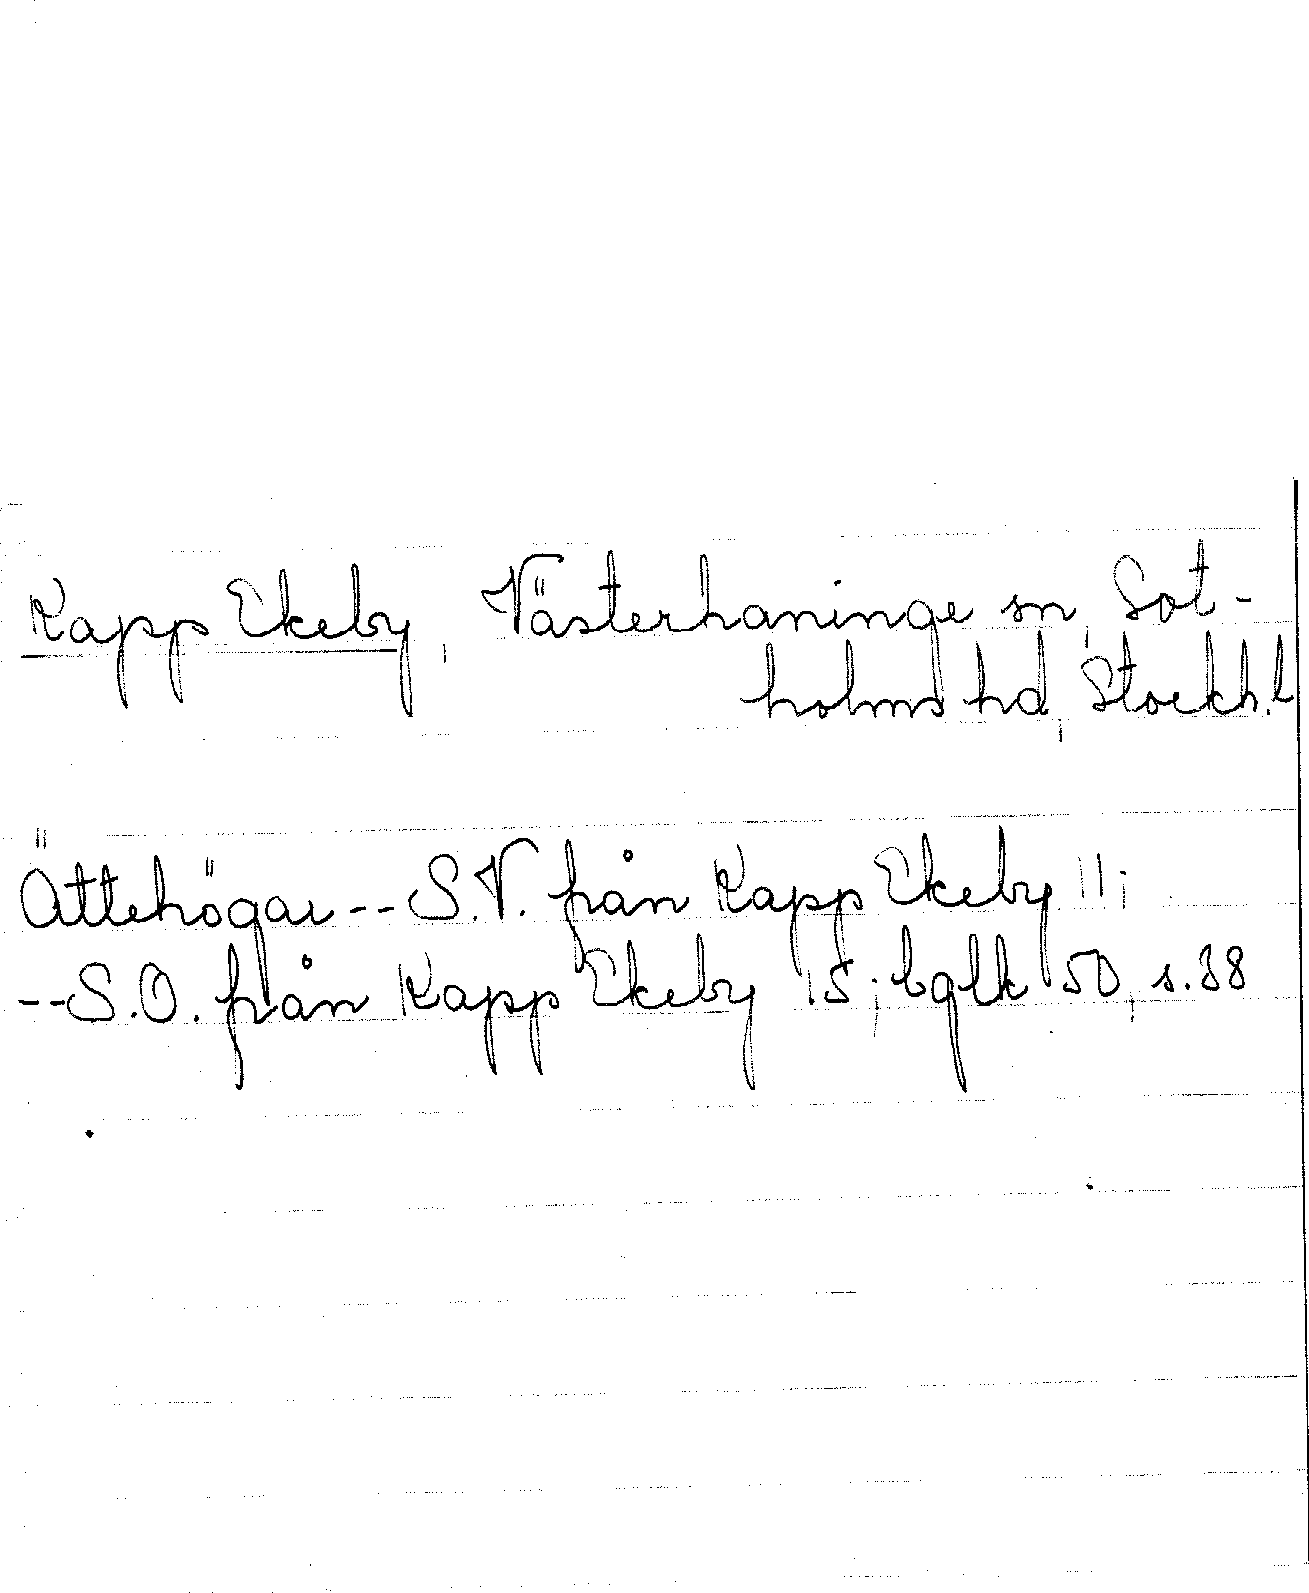 Kapp Ekeby, Västerhaninge sn, Sot-
holms hd, Stockh.l
Ättehögar -- S.V. från Kapp Ekeby 11;
-- S.O. från Kapp Ekeby 15; bglk 50, s. 38